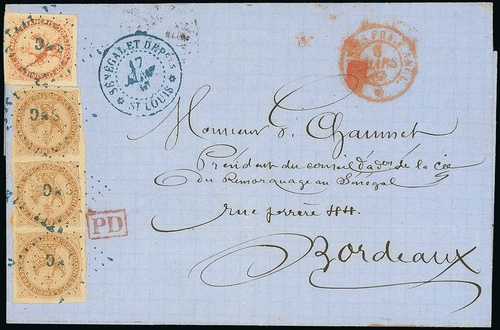 SÉNÉGAL ET DÉPCES
17
ST LOUIS
6
MARS
PD
Monsieur Chaumet
Président du conseil d'ad^on de la Cie
du Remorquage au Sénégal
rue ferrère 44.
Bordeaux